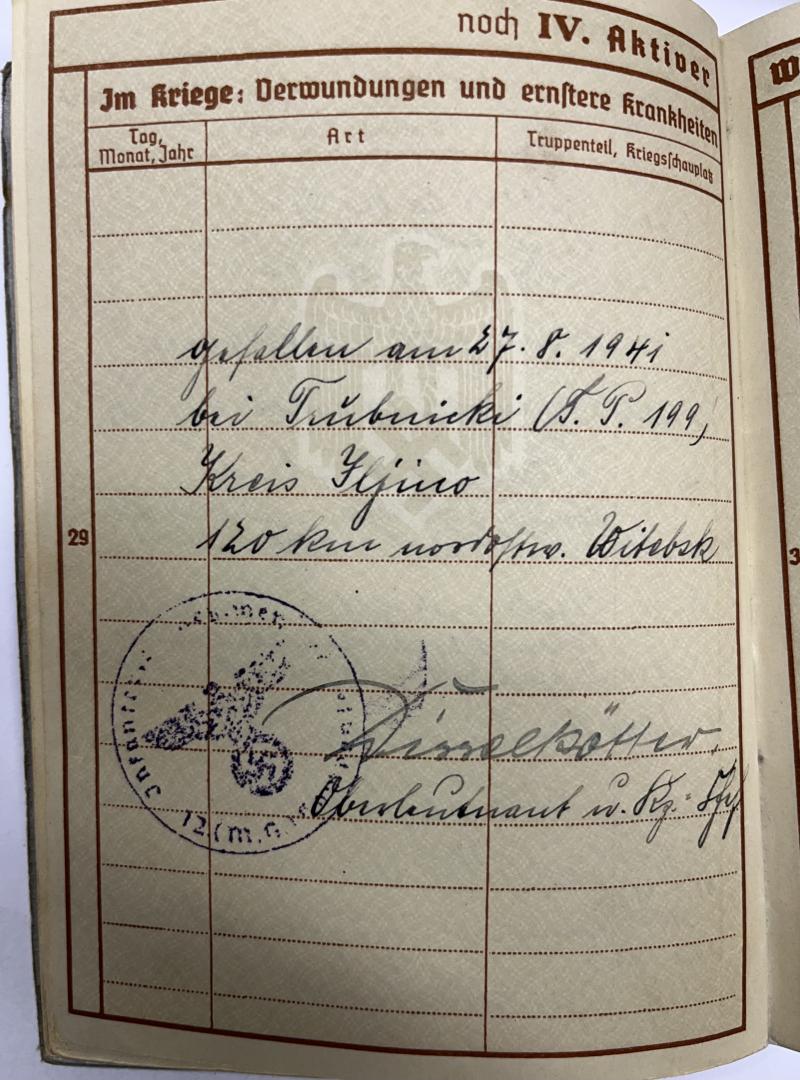 noch IV. Aktiver
Im Kriege: Verwundungen und ernstere Krankheiten
Tag, Monat, Jahr
Art
Truppenteil, Kriegsschauplatz
gefallen am 27. 8. 1941
bei Trubnicki (T. P. 199)
Kreis Iljino
120 km nordostw. Witebsk
29
Infanterie
12. (M.G.)
Oberleutnant u. Kp.-
W
3